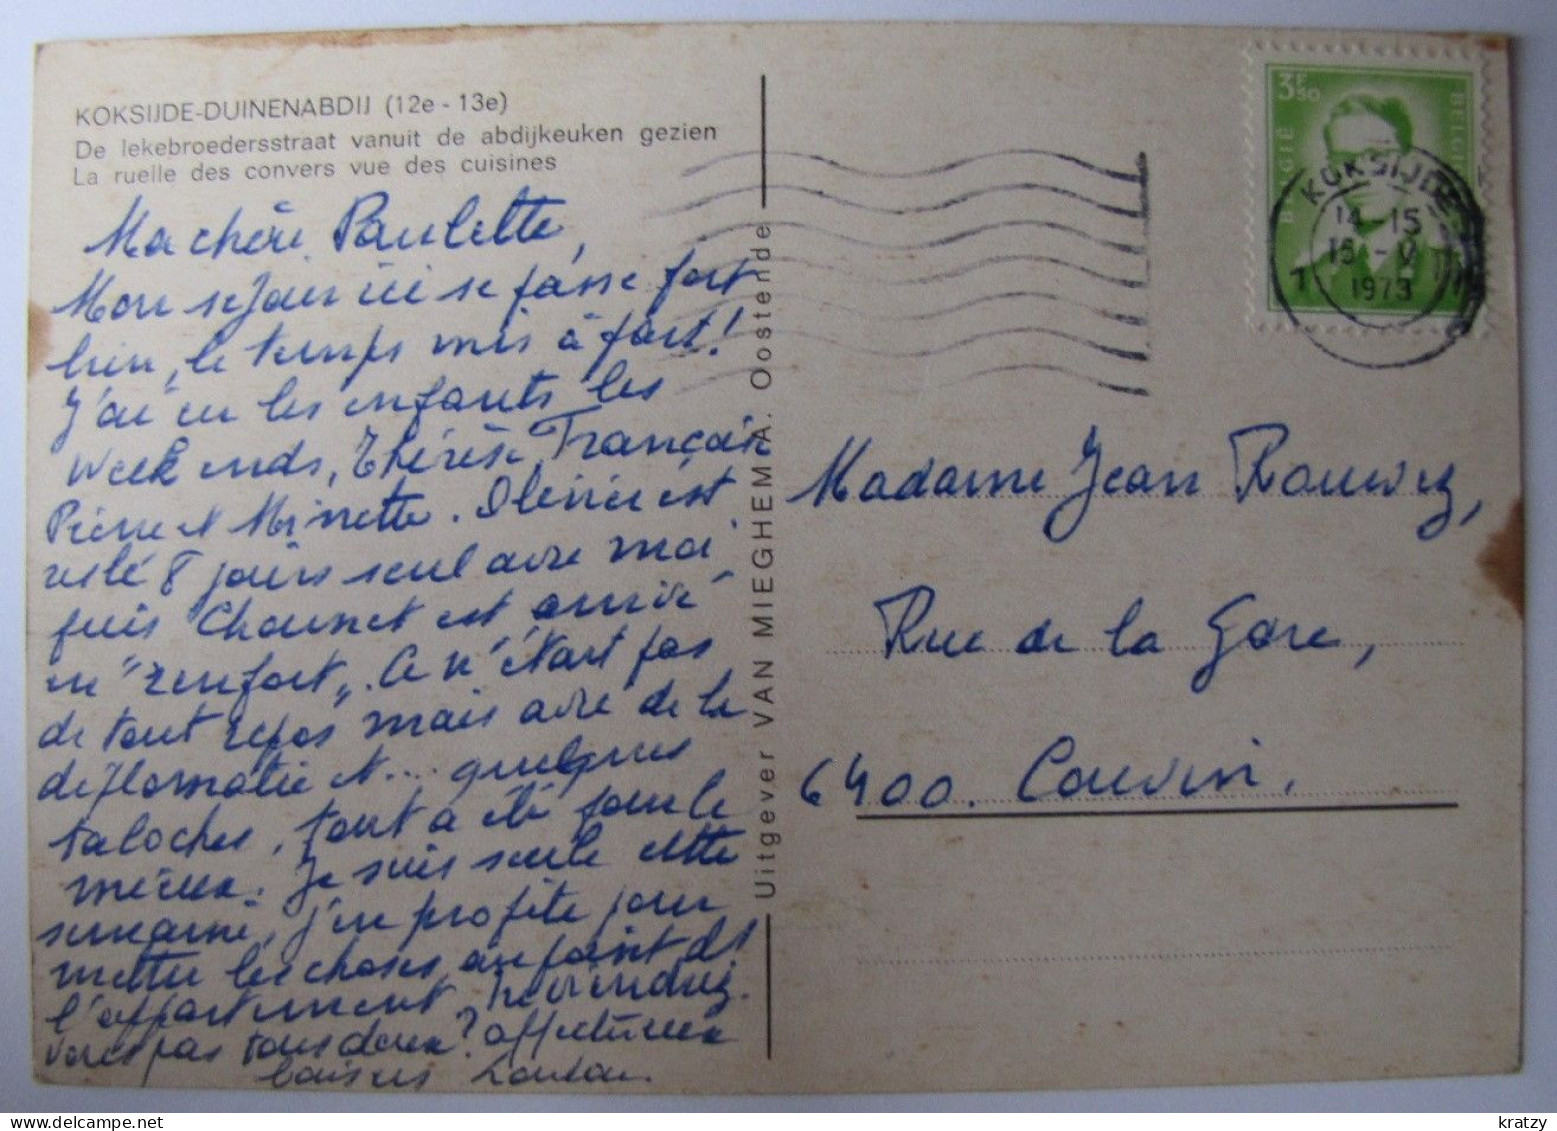 KOKSIJDE-DUINENABDIJ (12e - 13e)
De lekebroedersstraat vanuit de abdijkeuken gezien
La ruelle des convers vue des cuisines
Ma chère Paulette,
Mon séjour ici se passe fort
bien, le temps mis à part!
J'ai eu les enfants les
week ends, Thérèse, François
Pierre et Minette. Olivier est
resté 8 jours seul avec moi
puis Chounet est arrivé
en "renfort". Ce n'était pas
de tout repos mais avec de la
diplomatie et.... quelques
taloches, tout a été pour le
mieux. Je suis seule cette
semaine, j'en profite pour
mettre les choses au point ds
l'appartement. Ne viendriez
vous pas tous deux? Affectueux
baisers
Uitgever VAN MIEGHEM A. Oostende
BELGIË BELGIQUE
3F50
KOKSIJDE
14-15
15-V
1973
1
Madame Jean Rouwez,
Rue de la Gare,
6400. Couvin.
kratzy